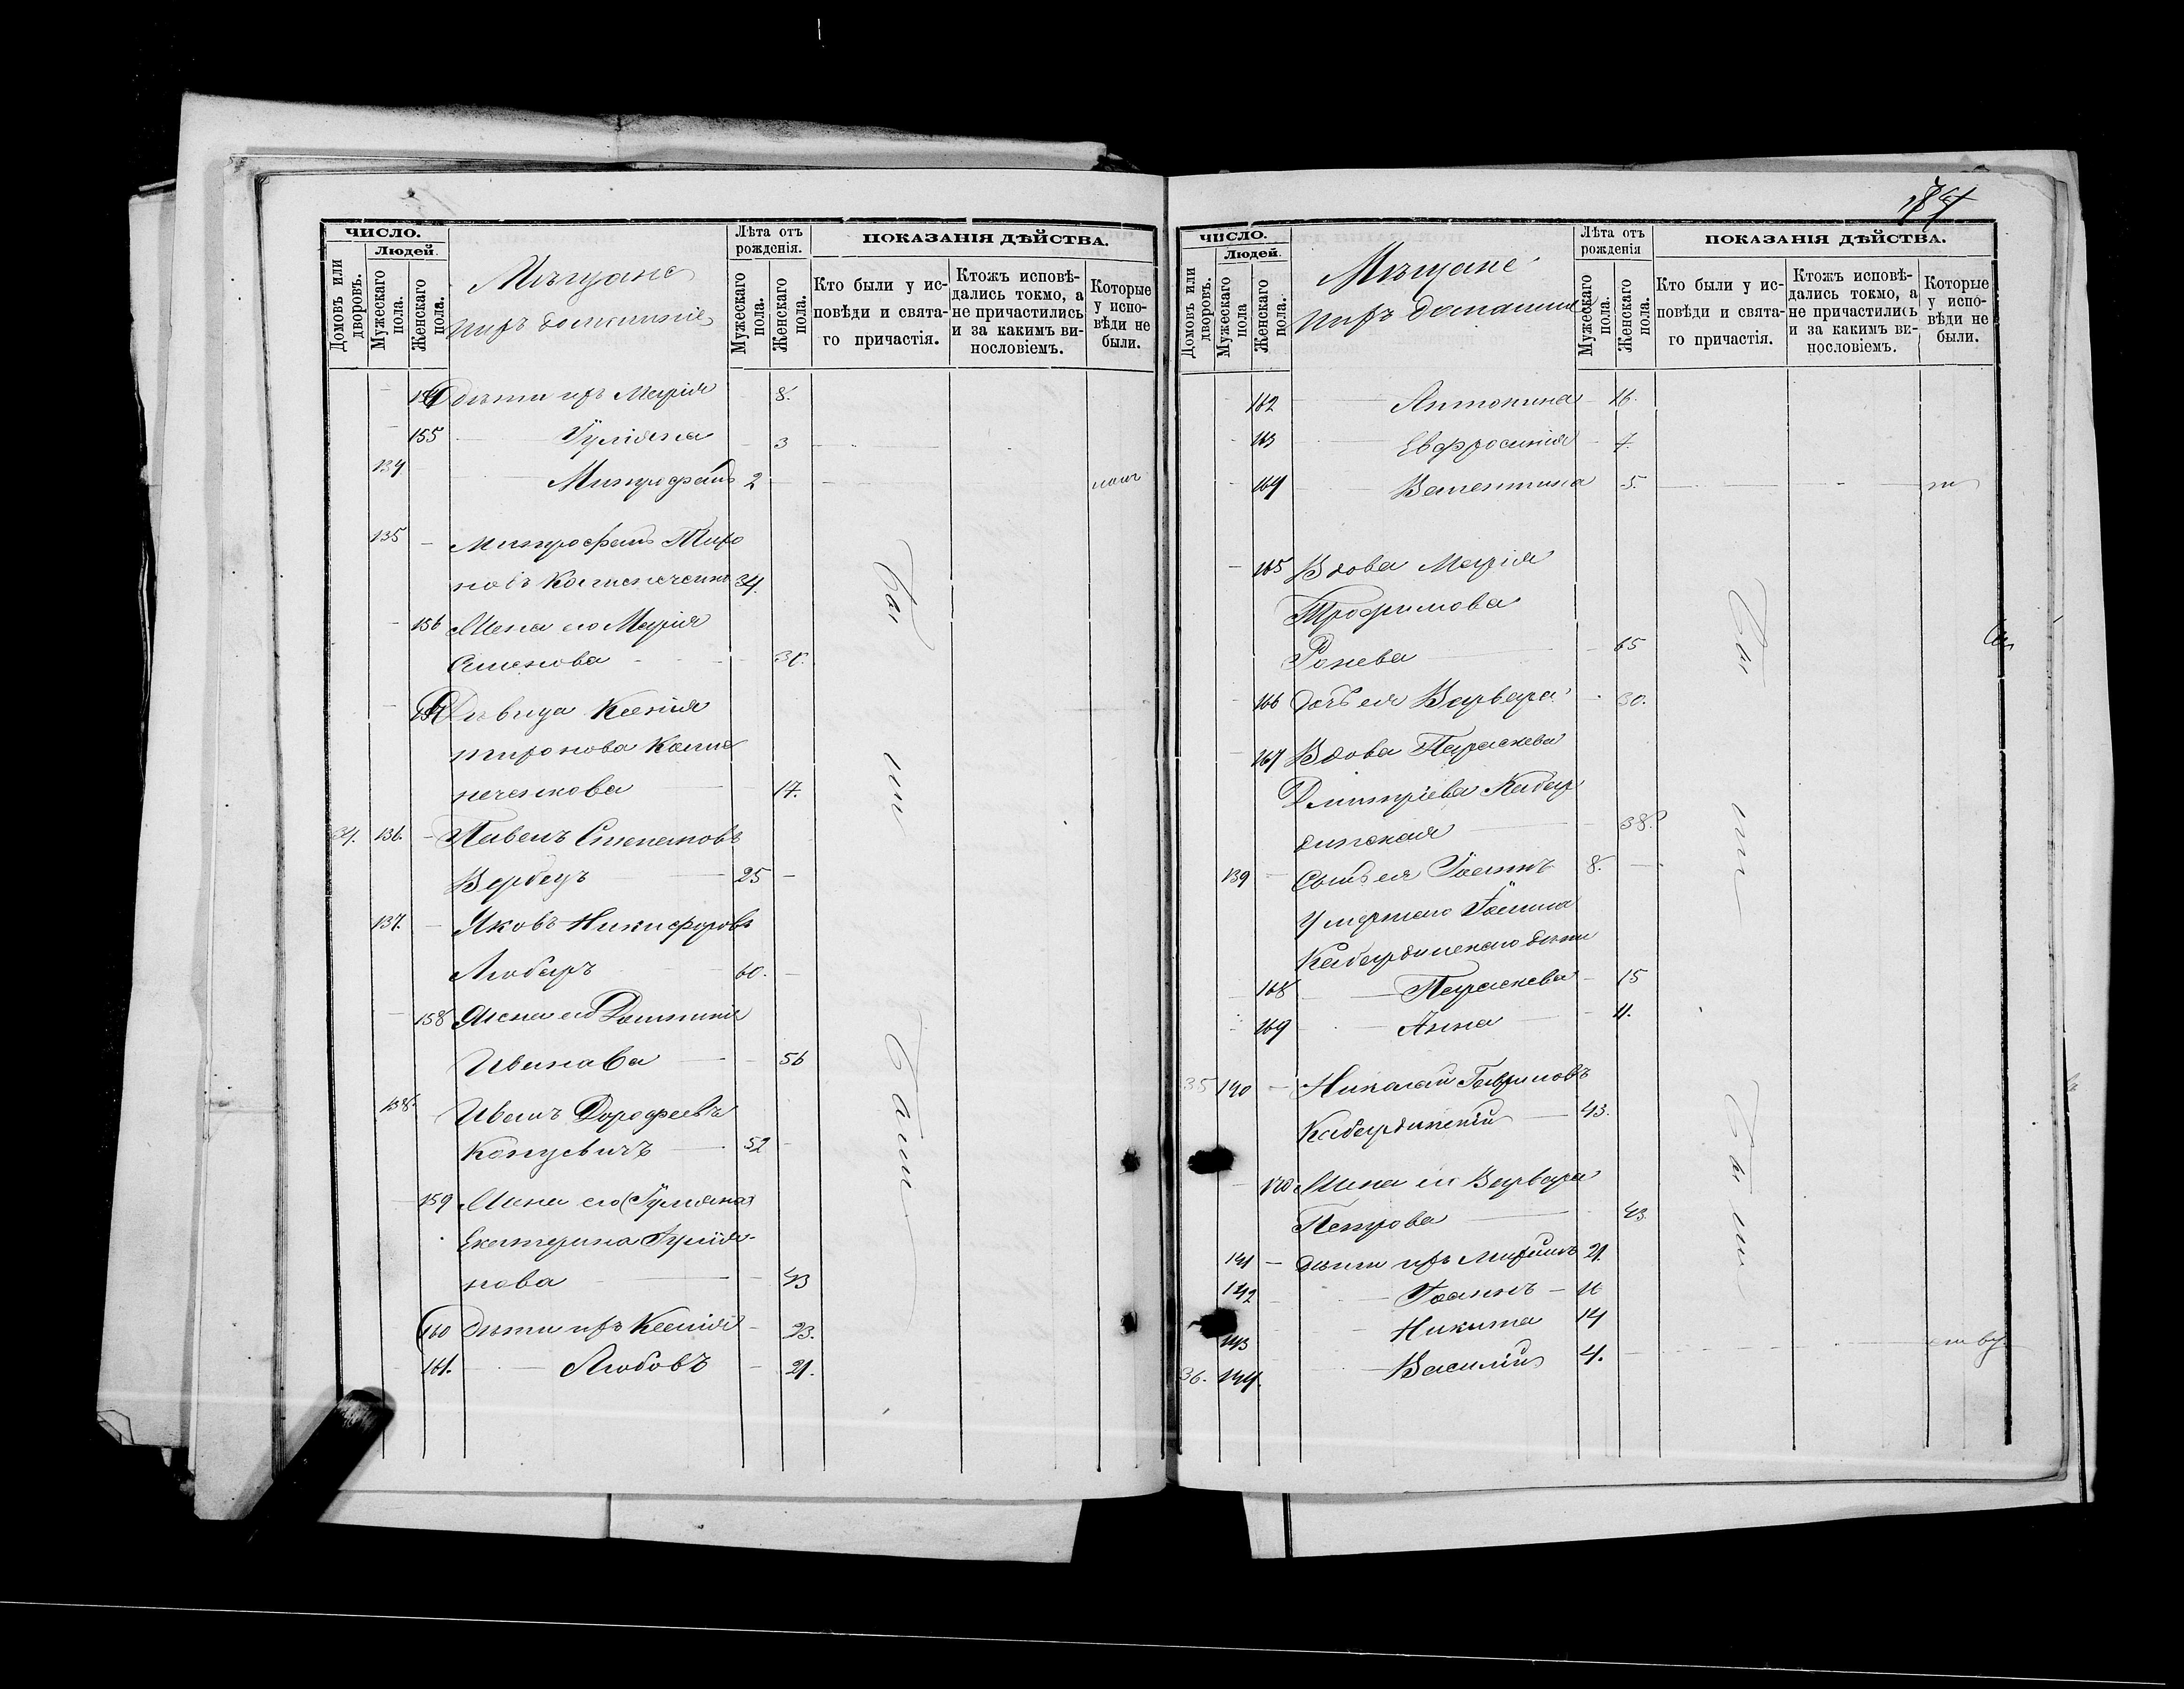 ЧИСЛО.
Людей.
Домовъ или дворовъ.
Мужескаго пола.
Женскаго пола.
Мѣщане
ихъ домашніе
Лѣта отъ рожденія.
Мужескаго пола.
Женскаго пола.
ПОКАЗАНІЯ ДѢЙСТВА.
Кто были у исповѣди и святаго причастія.
Ктожъ исповѣдались токмо, а не причастились и за какимъ винословіемъ.
Которые у исповѣди не были.
154 Дѣти ихъ Марія 8.
155 Іуліана 3
134 Митрофанъ 2
135 Митрофанъ
34.
156 Жена его Марія
Семенова
Дѣвица Ксенія
17.
34. 136. Павелъ Степановъ
Вербецъ 25
137. Яковъ Никифоровъ
Любаръ 60.
158 Жена его Домникія
Иванова 56
138. Иванъ Дорофеевъ
52
159 Жена его (Іуліана)
Екатерина Іулія-
нова 43
160 дѣти ихъ Ксенія 23.
161. Любовъ 21.
Были
Были
ЧИСЛО.
Людей.
Домовъ или дворовъ.
Мужескаго пола
Женскаго пола.
Мѣщане
ихъ домашніе
Лѣта отъ рожденія
Мужескаго пола.
Женскаго пола.
ПОКАЗАНІЯ ДѢЙСТВА.
Кто были у исповѣди и святаго причастія.
Ктожъ исповѣдались токмо, а не причастились и за какимъ винословіемъ.
Которые у исповѣди не были.
162 Антонина 16.
163 Евфросинія 7.
164 Валентина 5.
165 Вдова Марія
Трофимова
Ронева 65
166 дочь ея Варвара 30.
167 Вдова Параскева
Дмитріева Кабар
динская 38.
139 Сынъ ея Іоаннъ 8.
Умершаго Іоанна
Кабардинскаго дѣти
168 Параскева 15
169 Анна 11.
35 140 Николай Гавриловъ
Кабардинскій 43.
170 Жена его Варвара
Петрова 43.
141 дѣти ихъ 21.
142 Іоаннъ 16
143 Никита 14
36. 144. Василій 4.
Были
Были